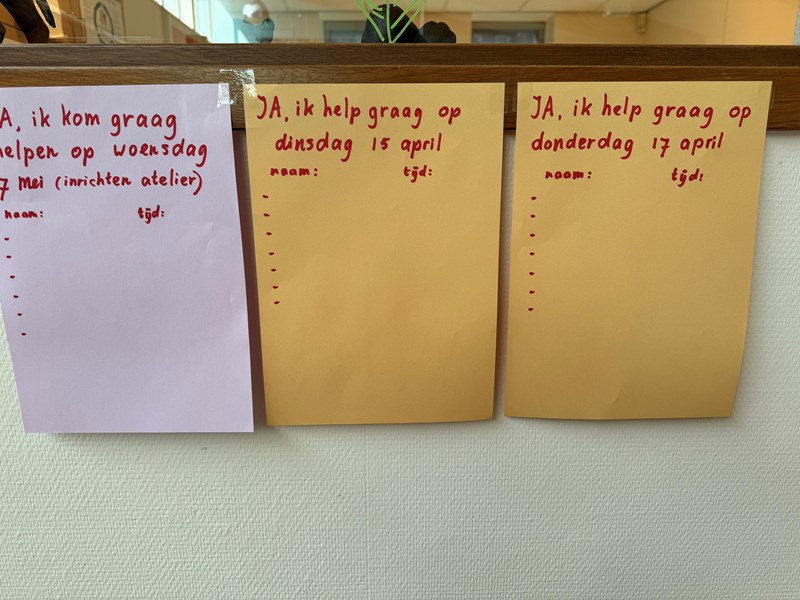 A, ik kom graag
helpen op woensdag
7 mei (inrichten atelier)
naam: tijd:
JA, ik help graag op
dinsdag 15 april
naam: tijd:
JA, ik help graag op
donderdag 17 april
naam: tijd: